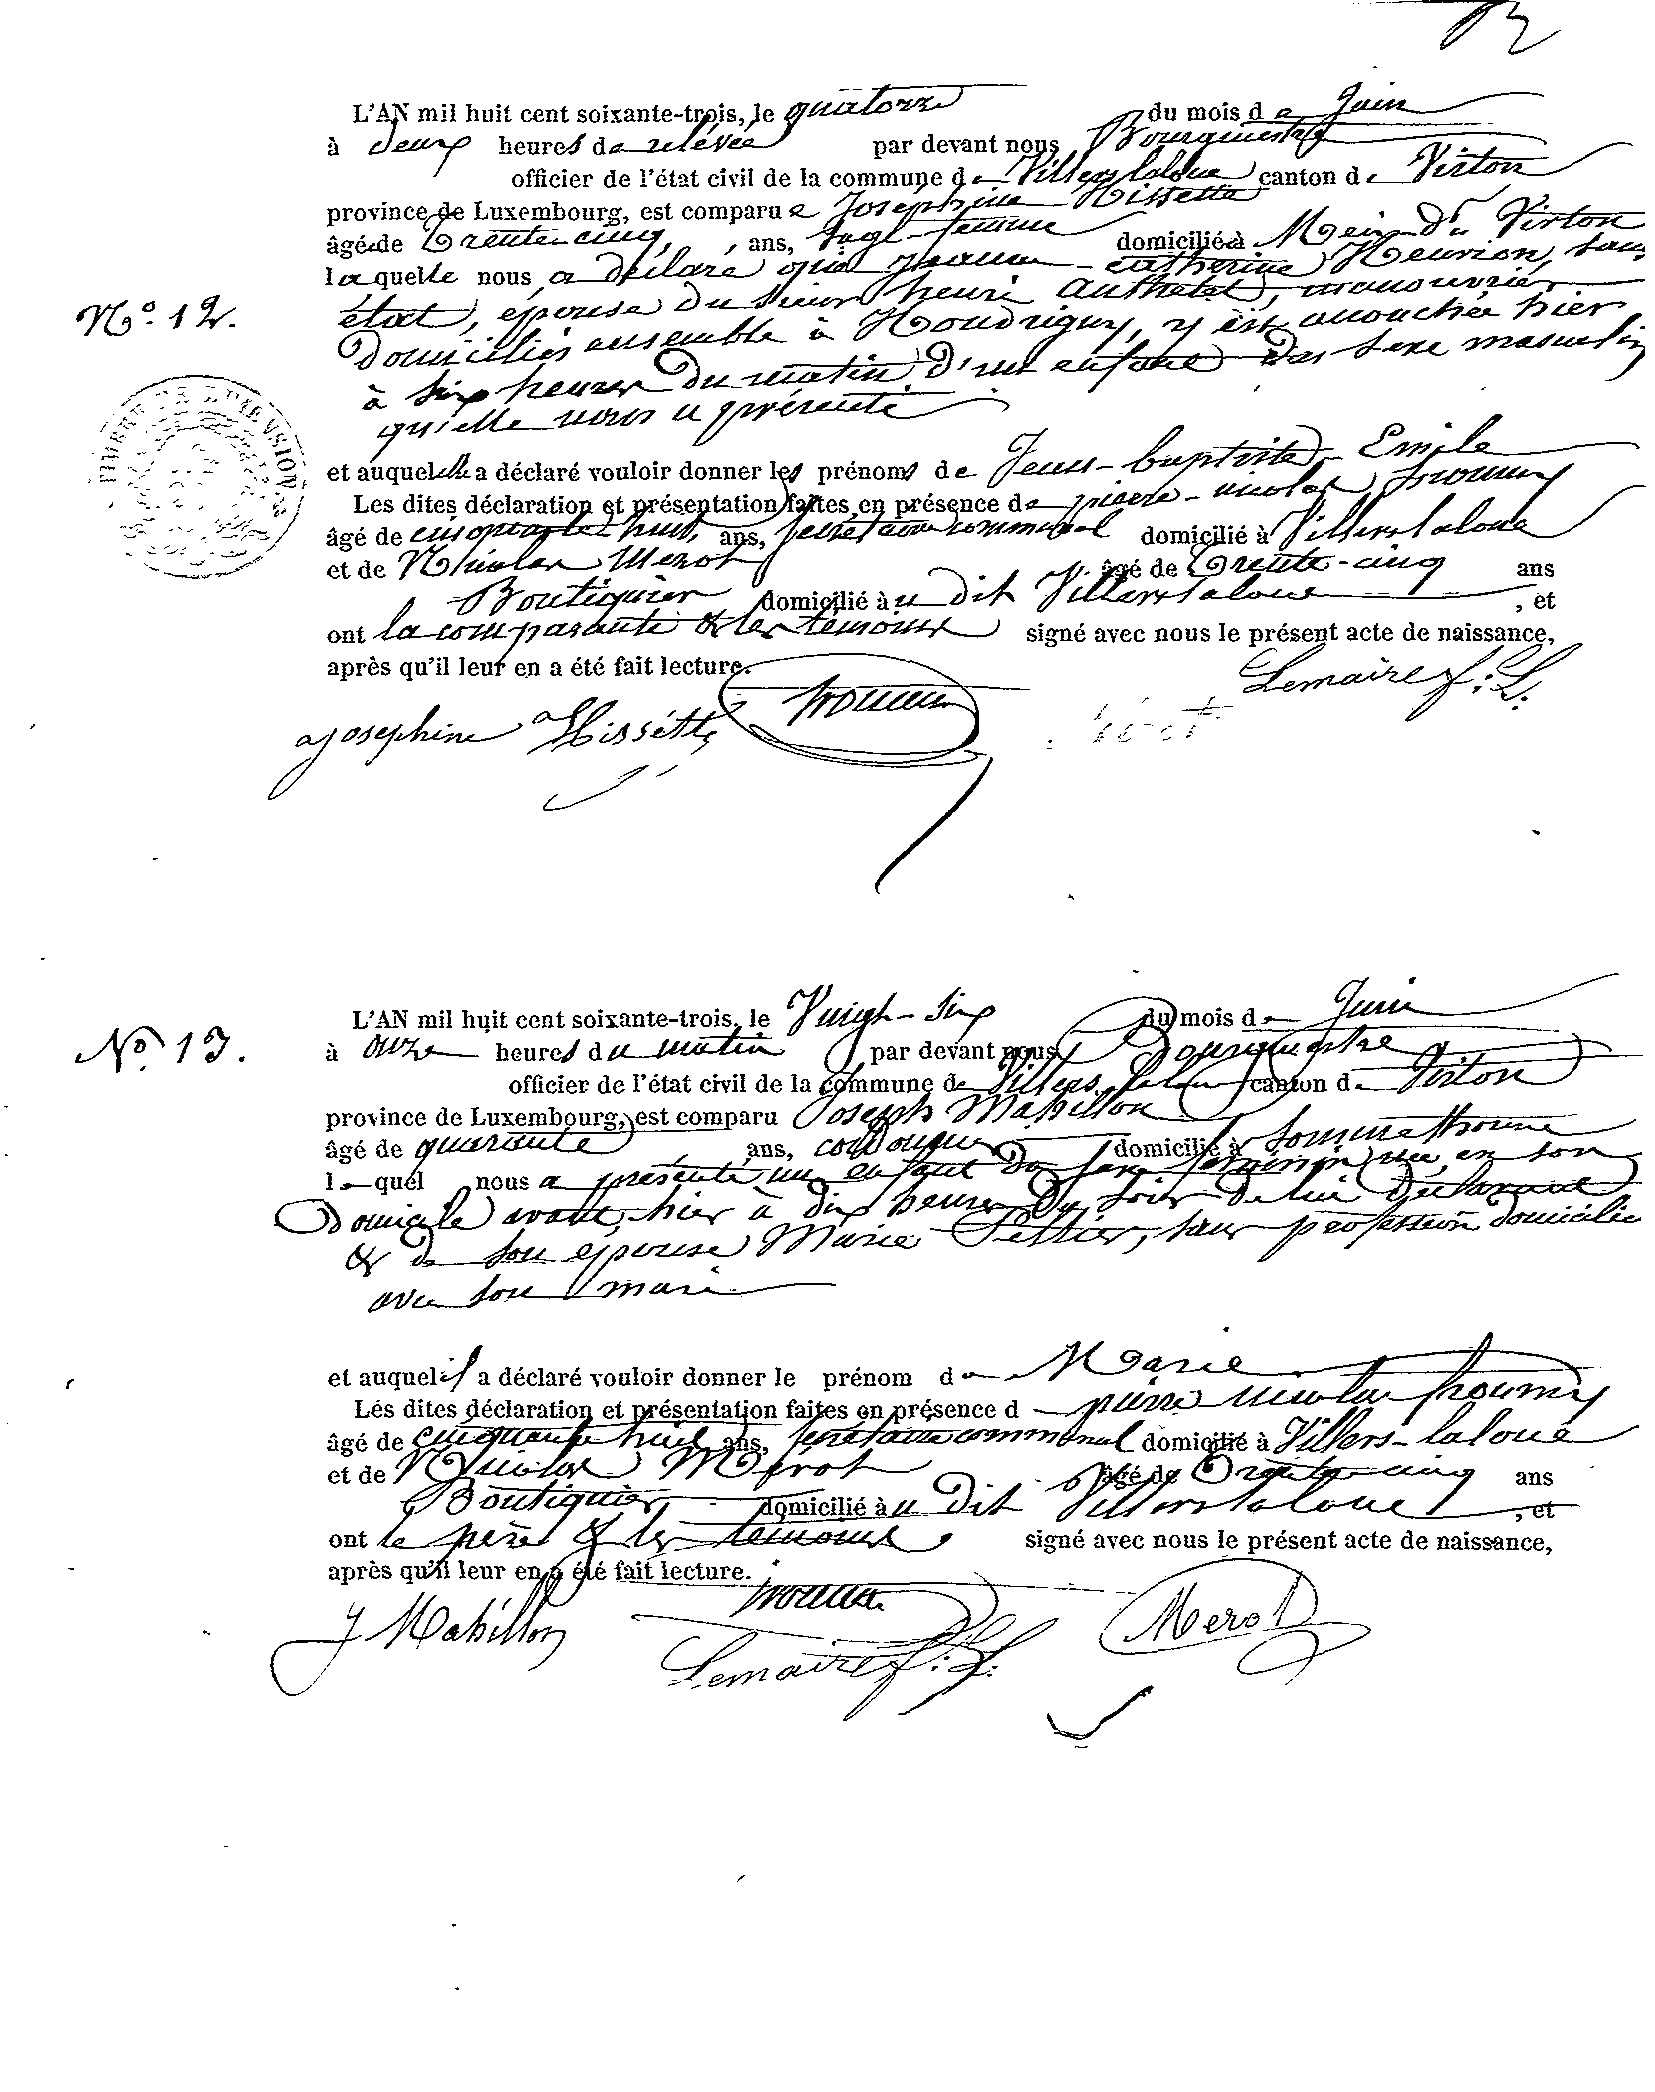 L'AN mil huit cent soixante-trois, le quatorze du mois de Juin
à deux heures de relevée par devant nous Bourgmestre
officier de l'état civil de la commune de Villerslaloue canton de Virton
province de Luxembourg, est comparue Josephine Hissette
âgée de trente-cinq, ans, sage-femme domiciliée à Meix-dt Virton
laquelle nous a déclaré que jeanne-catherine Henrion, sans
état, épouse du sieur henri Authelet, manouvrier,
Domiciliés ensemble à Houdrigny, y est accouchée hier
à six heures du matin, d'un enfant du sexe masculin
qu'elle nous a présenté
N° 12.
et auquel elle a déclaré vouloir donner les prénoms de Jean-baptiste-Emile
Les dites déclaration et présentation faites en présence de pierre-nicolas
âgé de cinquante huit, ans, secrétaire communal domicilié à Villerslaloue
et de Nicolas Merot âgé de trente-cinq ans
Boutiquier domicilié au dit Villerslaloue, et
ont la comparante & les témoins signé avec nous le présent acte de naissance,
après qu'il leur en a été fait lecture.
Lemaire f: L.
Josephine Hissette
N° 13.
L'AN mil huit cent soixante-trois, le Vingt-six du mois de Juin
à onze heures du matin par devant nous Bourgmestre
officier de l'état civil de la commune de Villers-laloue canton de Virton
province de Luxembourg, est comparu Joseph Mahillon
âgé de quarante ans, domicilié à Sommethonne
lequel nous a présenté un enfant du sexe féminin née, en son
Domicile avant-hier à dix heures du soir de lui Déclarant
& de son épouse Marie Pettier, sans profession domiciliée
avec son mari
et auquel il a déclaré vouloir donner le prénom de Marie
Les dites déclaration et présentation faites en présence d pierre nicolas
âgé de cinquante huit ans, secrétaire communal domicilié à Villers-laloue
et de Nicolas Merot âgé de Trente-cinq ans
Boutiquier, domicilié au dit Villerslaloue, et
ont le père & les témoins signé avec nous le présent acte de naissance,
après qu'il leur en a été fait lecture.
J Mahillon Merot
Lemaire f: L: